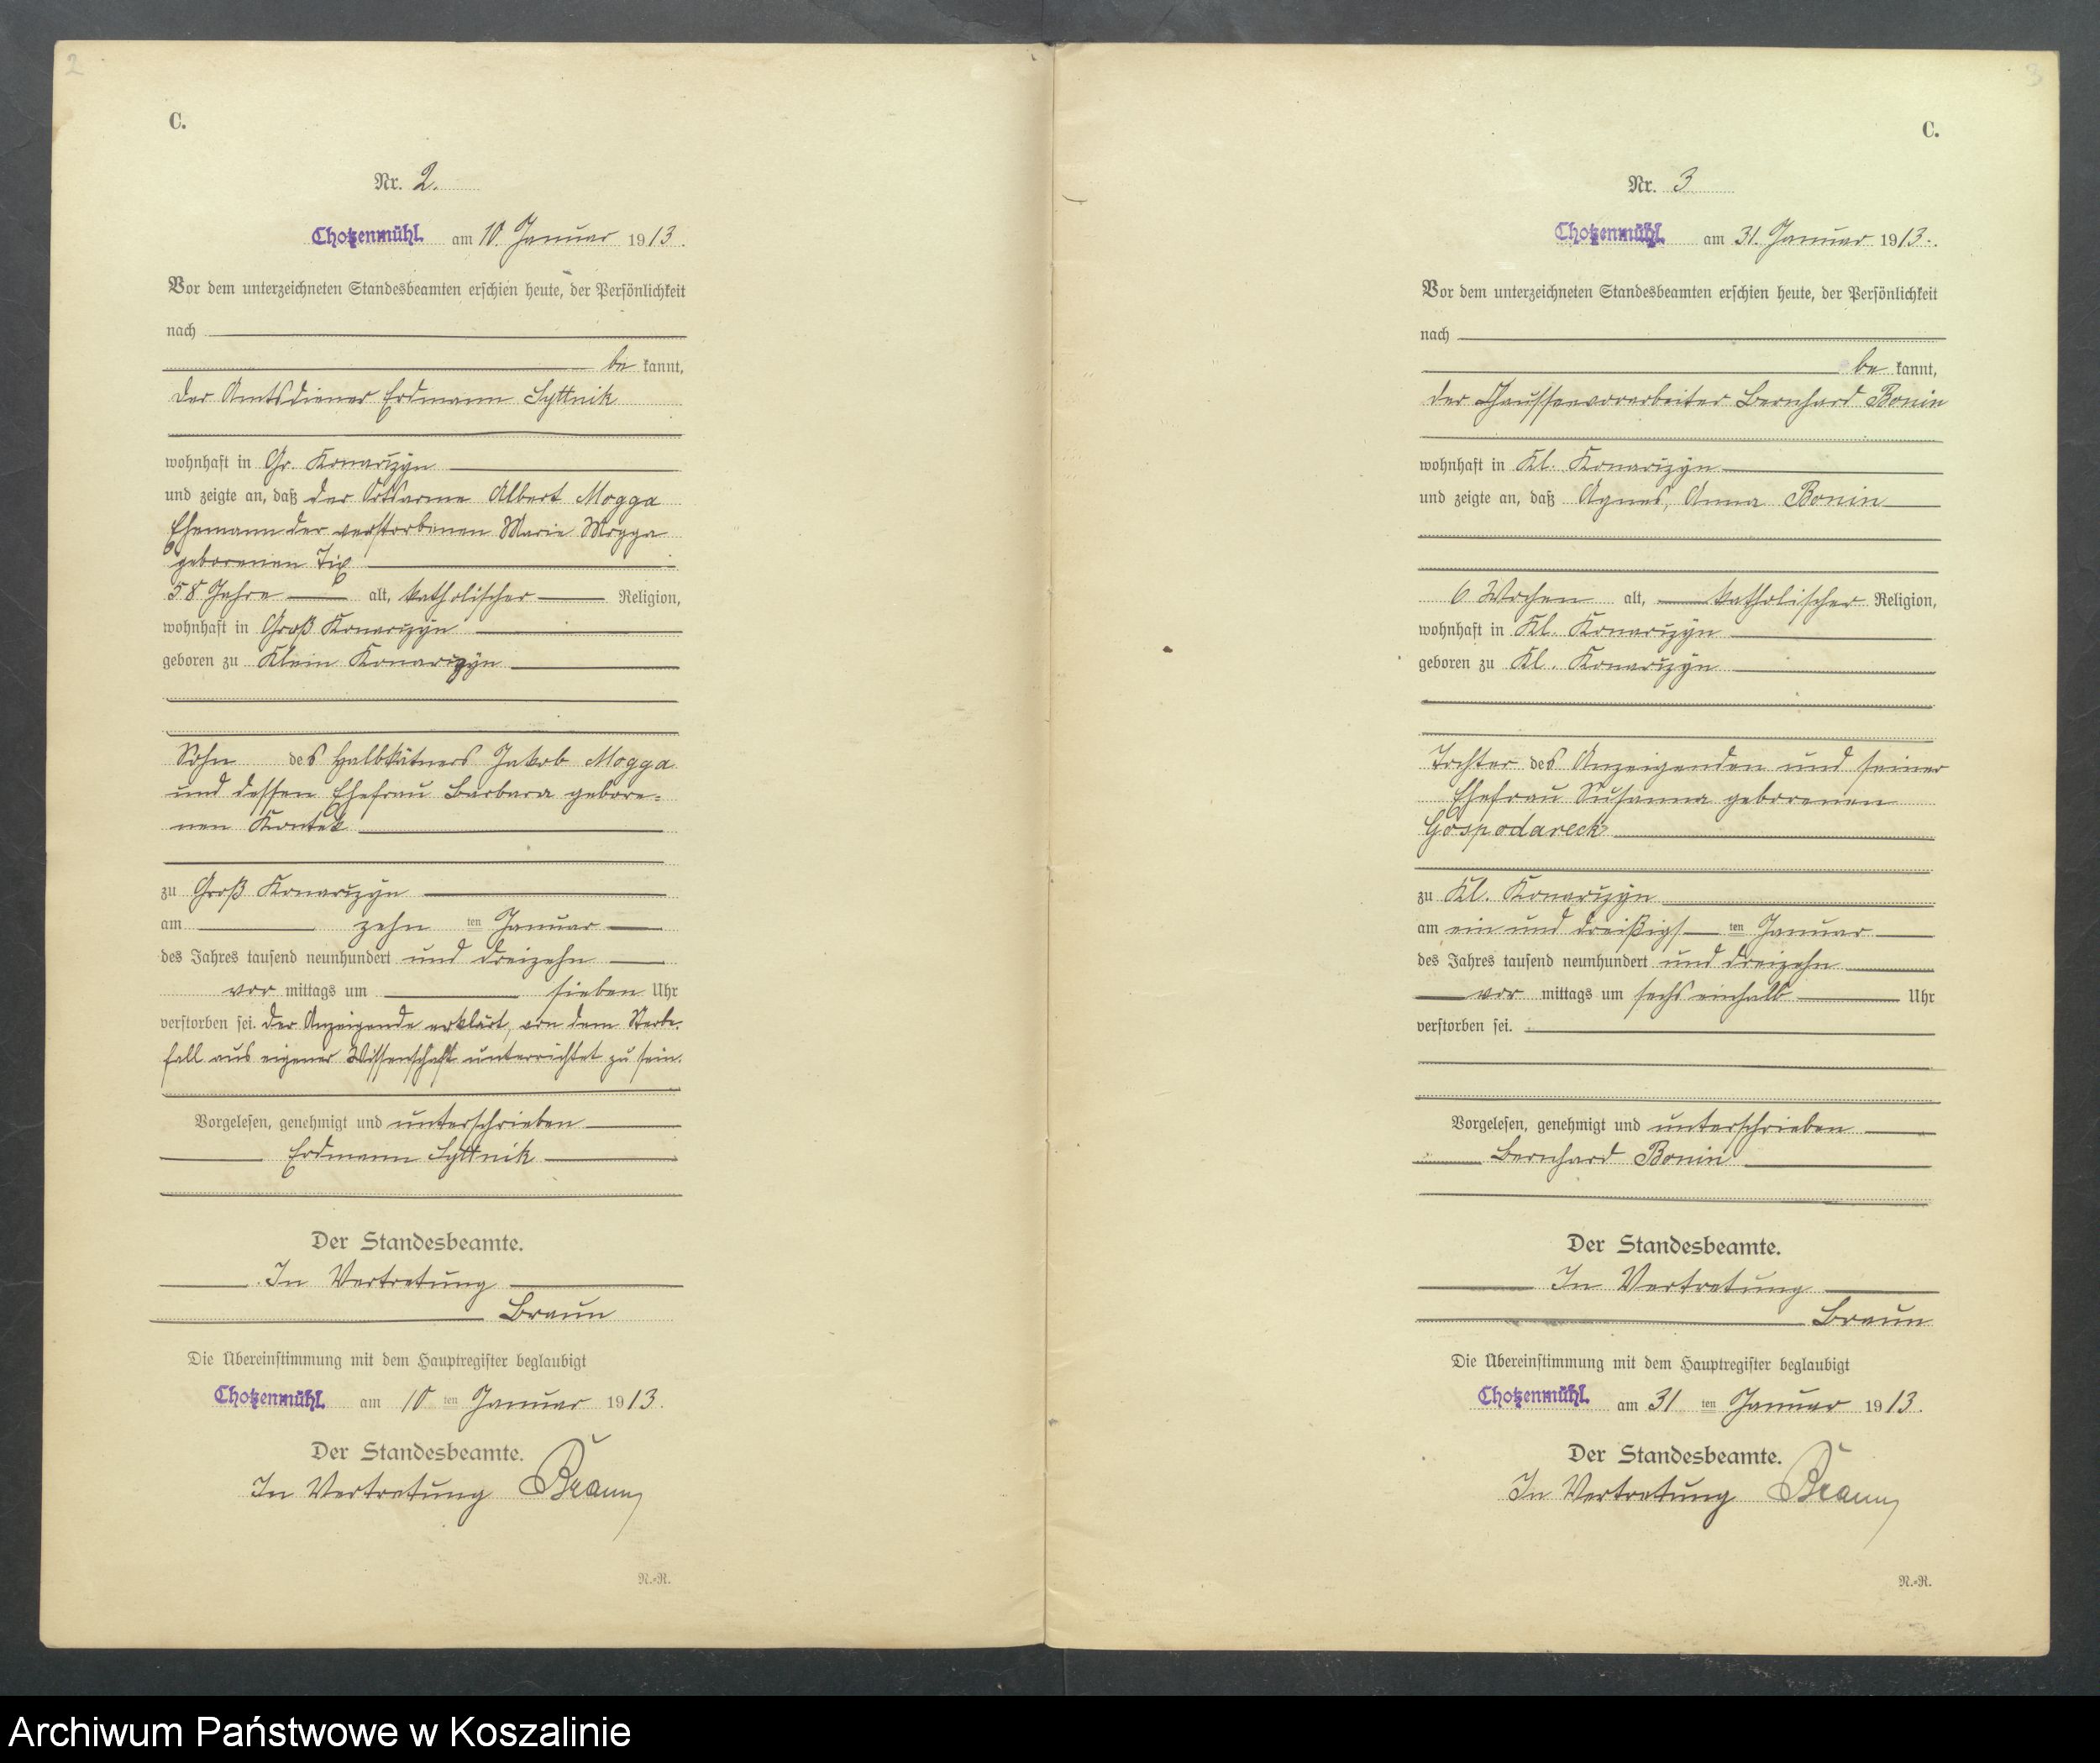 2
C.
Nr. 2.
Chotzenmühl. am 10. Januar 1913.
Vor dem unterzeichneten Standesbeamten erschien heute, der Persönlichkeit
nach
be kannt,
der Amtsdiener Erdmann Syttnik
wohnhaft in Gr. Konarczyn
und zeigte an, daß der Ortsarme Albert Mogga
Ehemann der verstorbenen Marie Mogga
geborenen
58 Jahre alt, katholischer Religion,
wohnhaft in Groß Konarczyn
geboren zu Klein Konarczyn
Sohn des Halbkätners Jakob Mogga
und dessen Ehefrau Barbara gebore-
nen
zu Groß Konarczyn
am zehn ten Januar
des Jahres tausend neunhundert und dreizehn
vor mittags um sieben Uhr
verstorben sei. Der Anzeigende erklärt, von dem Sterbe-
fall aus eigener Wissenschaft unterrichtet zu sein.
Vorgelesen, genehmigt und unterschrieben
Erdmann Syttnik
Der Standesbeamte.
In Vertretung
Braun
Die Übereinstimmung mit dem Hauptregister beglaubigt
Chotzenmühl. am 10 ten Januar 1913.
Der Standesbeamte.
In Vertretung Braun
R.-R.
3
C.
Nr. 3
Chotzenmühl. am 31. Januar 1913.
Vor dem unterzeichneten Standesbeamten erschien heute, der Persönlichkeit
nach
be kannt,
der Chausseevorarbeiter Bernhard Bonin
wohnhaft in Kl. Konarczyn
und zeigte an, daß Agnes, Anna Bonin
6 Wochen alt, katholischer Religion,
wohnhaft in Kl. Konarczyn
geboren zu Kl. Konarczyn
Tochter des Anzeigenden und seiner
Ehefrau Susanna geborenen
Gospodareck
zu Kl. Konarczyn
am ein und dreißigs ten Januar
des Jahres tausend neunhundert und dreizehn
vor mittags um sechs einhalb Uhr
verstorben sei.
Vorgelesen, genehmigt und unterschrieben
Bernhard Bonin
Der Standesbeamte.
In Vertretung
Braun
Die Übereinstimmung mit dem Hauptregister beglaubigt
Chotzenmühl. am 31 ten Januar 1913.
Der Standesbeamte.
In Vertretung Braun
R.-R.
Archiwum Państwowe w Koszalinie